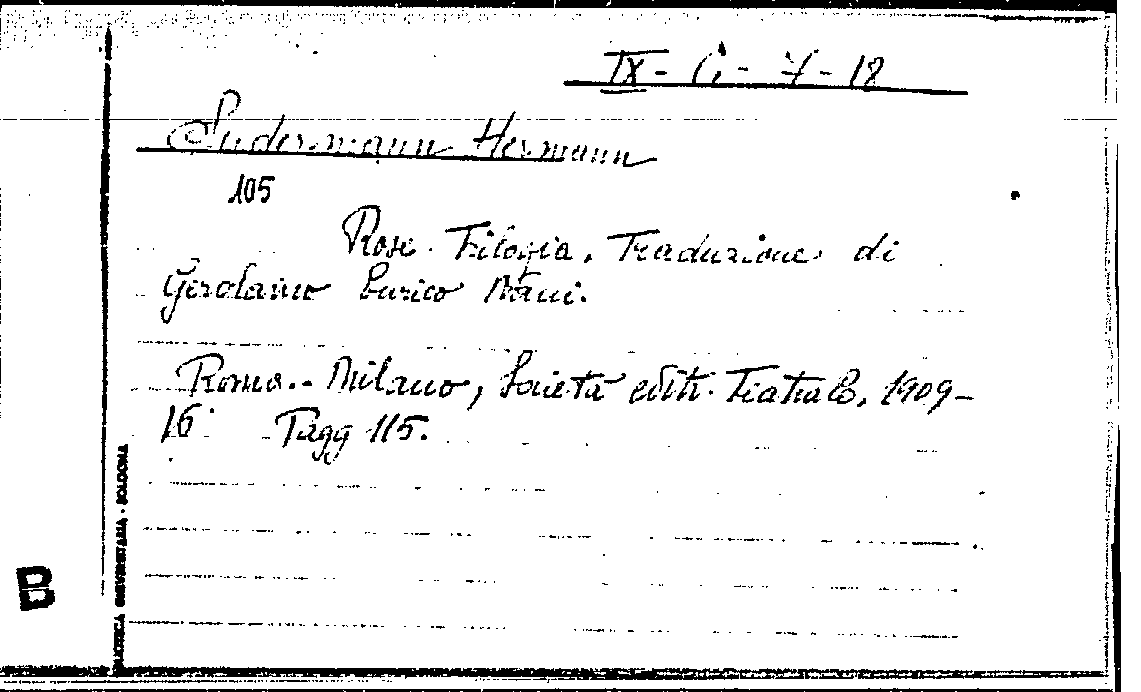 IX - G - 7 - 18
Sudermann Hermann
105
Rose. Trilogia. Traduzione di
Gerolamo Enrico Nani.
Roma. - Milano, Società editr. Teatrale, 1909 -
16° Pagg 115.
BIBLIOTECA UNIVERSITARIA - BOLOGNA
B